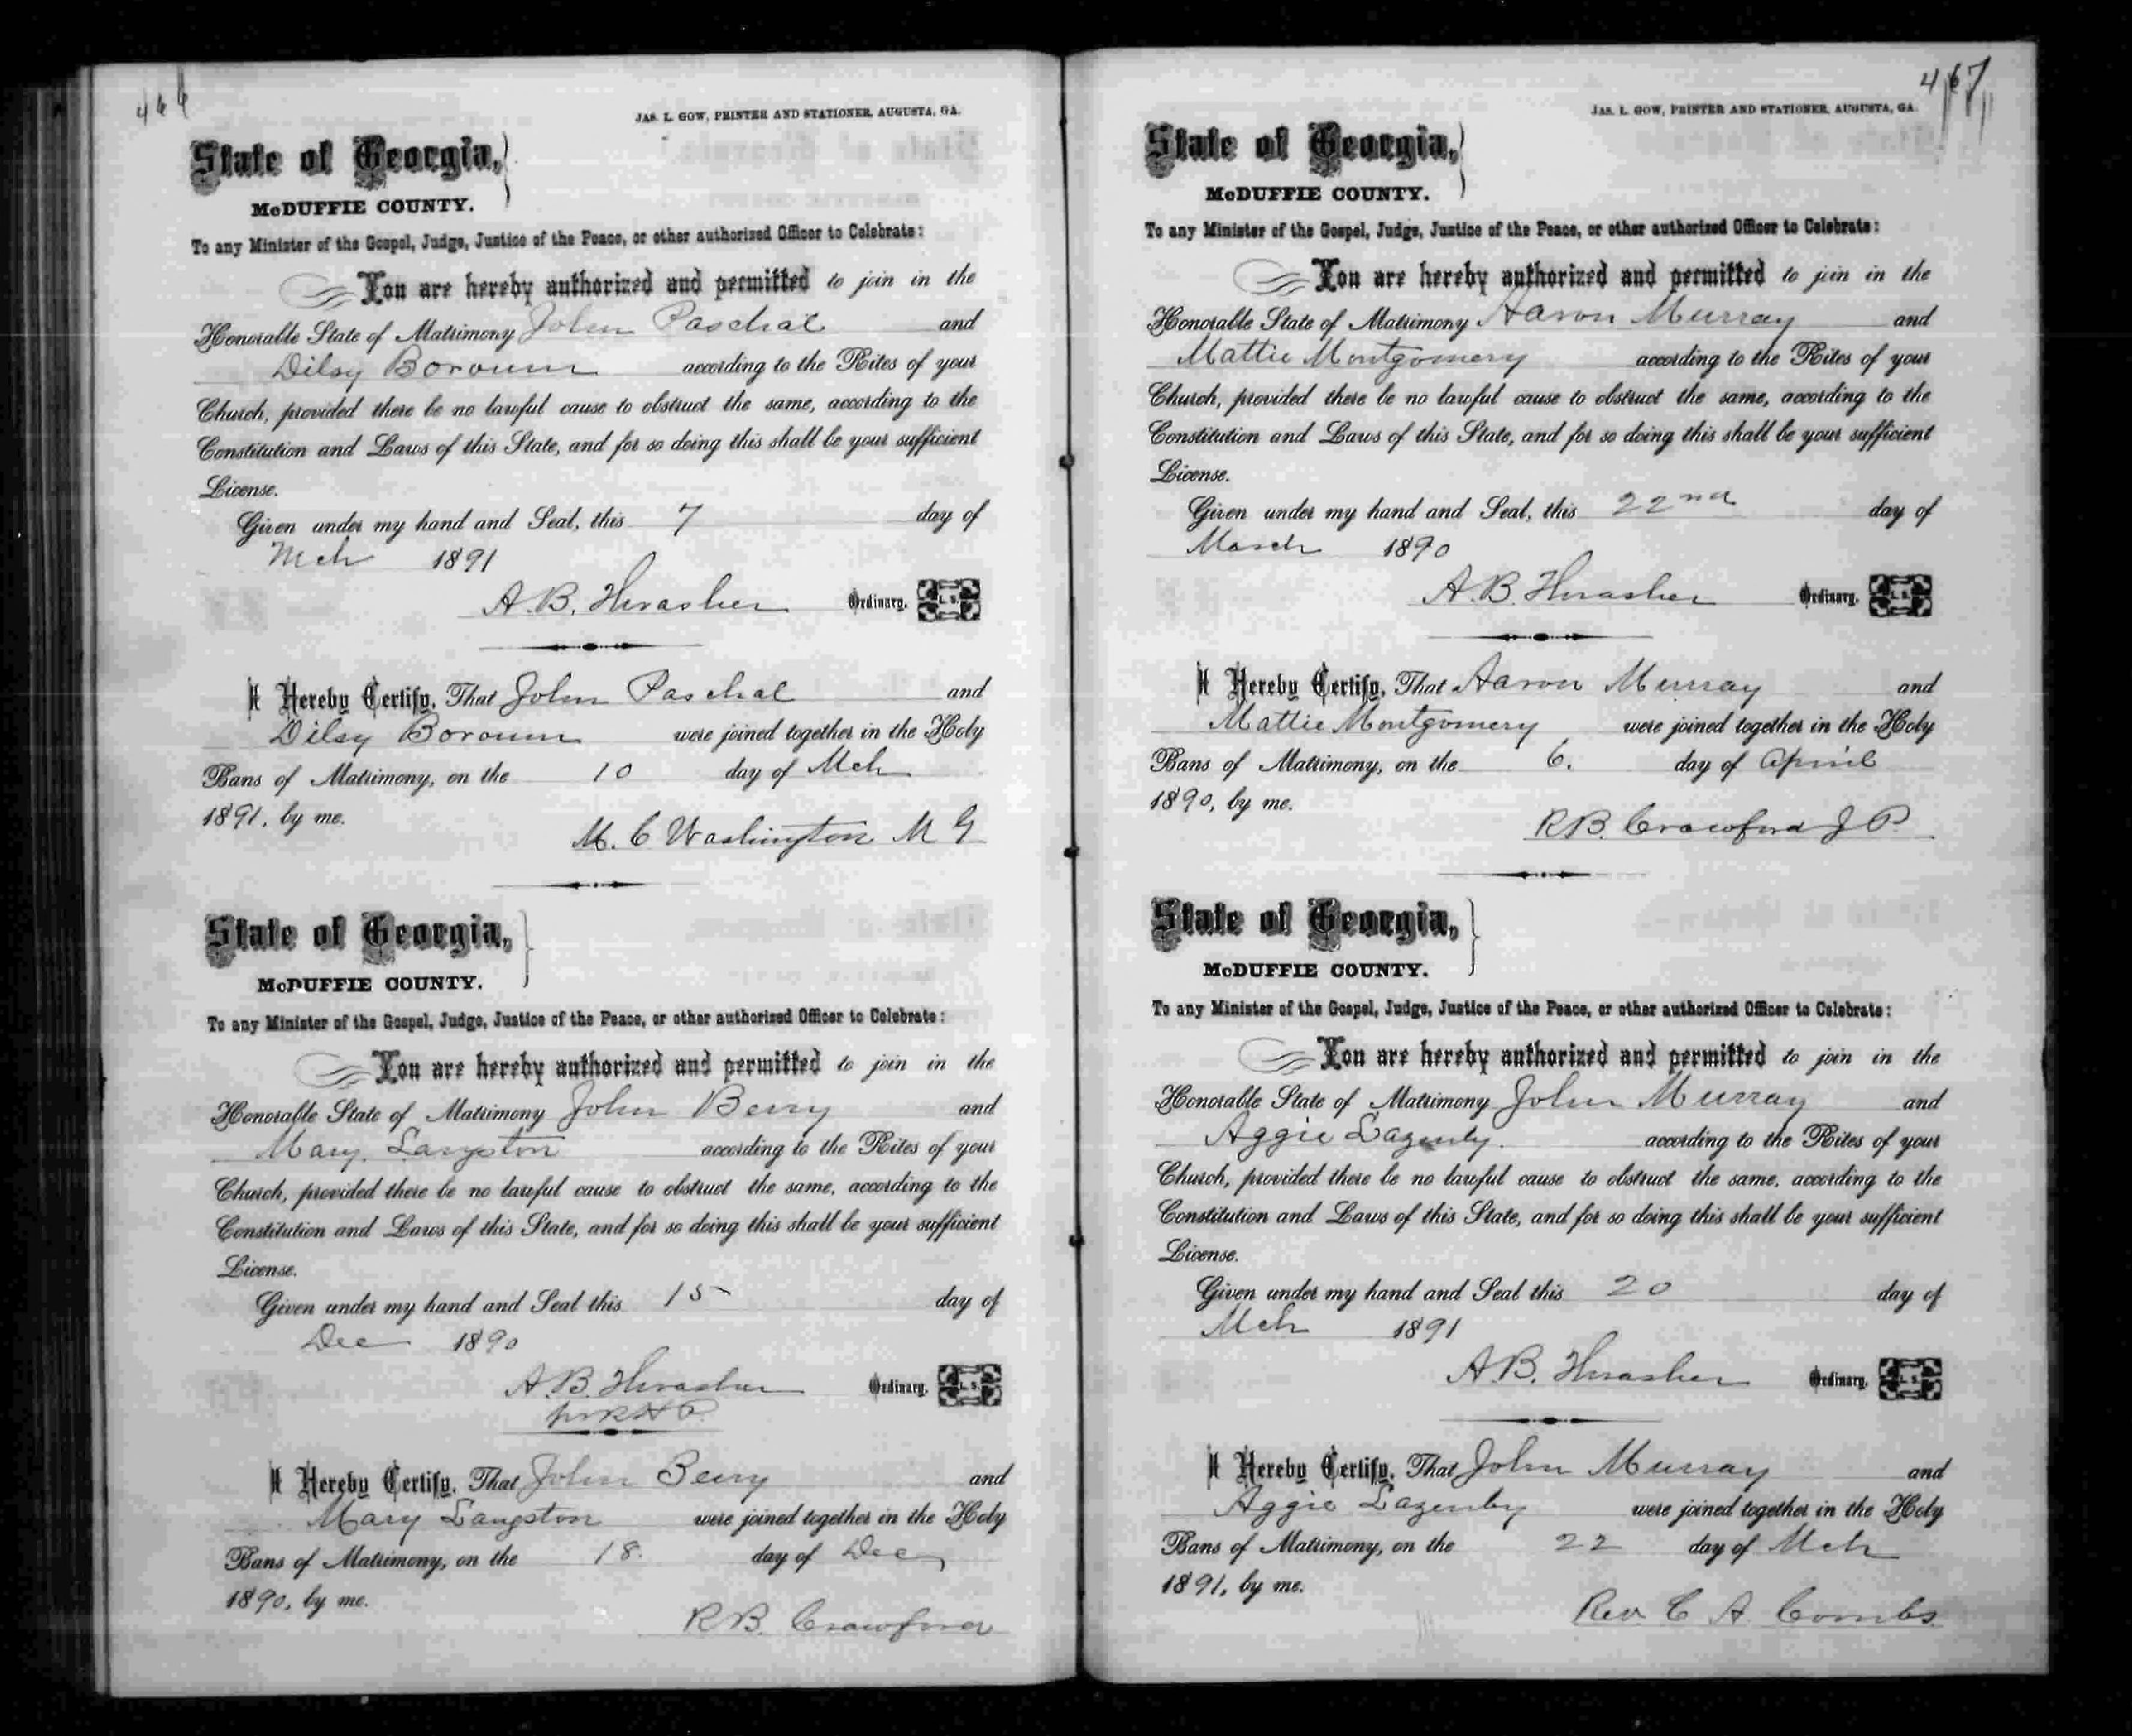 466
JAS. L. GOW, PRINTER AND STATIONER, AUGUSTA, GA.
State of Georgia,
McDUFFIE COUNTY.
To any Minister of the Gospel, Judge, Justice of the Peace, or other authorized Officer to Celebrate:
You are hereby authorized and permitted to join in the
Honorable State of Matrimony John Paschal and
Dilsy Boroum according to the Rites of your
Church, provided there be no lawful cause to obstruct the same, according to the
Constitution and Laws of this State, and for so doing this shall be your sufficient
License.
Given under my hand and Seal, this 7 day of
Mch 1891
A. B. Thrasher Ordinary. L. S.
I Hereby Certify, That John Paschal and
Dilsy Boroum were joined together in the Holy
Bans of Matrimony, on the 10 day of Mch
1891, by me.
M. C Washington M G
State of Georgia,
McDUFFIE COUNTY.
To any Minister of the Gospel, Judge, Justice of the Peace, or other authorized Officer to Celebrate:
You are hereby authorized and permitted to join in the
Honorable State of Matrimony John Berry and
Mary Langston according to the Rites of your
Church, provided there be no lawful cause to obstruct the same, according to the
Constitution and Laws of this State, and for so doing this shall be your sufficient
License.
Given under my hand and Seal this 15 day of
Dec 1890
A. B. Thrasher Ordinary. L. S.
I Hereby Certify, That John Berry and
Mary Langston were joined together in the Holy
Bans of Matrimony, on the 18. day of Dec
1890, by me.
R B. Crawford
467
JAS. L. GOW, PRINTER AND STATIONER, AUGUSTA, GA.
State of Georgia,
McDUFFIE COUNTY.
To any Minister of the Gospel, Judge, Justice of the Peace, or other authorized Officer to Celebrate:
You are hereby authorized and permitted to join in the
Honorable State of Matrimony Aaron Murray and
Mattie Montgomery according to the Rites of your
Church, provided there be no lawful cause to obstruct the same, according to the
Constitution and Laws of this State, and for so doing this shall be your sufficient
License.
Given under my hand and Seal, this 22nd day of
March 1890
A. B. Thrasher Ordinary. L. S.
I Hereby Certify, That Aaron Murray and
Mattie Montgomery were joined together in the Holy
Bans of Matrimony, on the 6. day of April
1890, by me.
R B. Crawford J P.
State of Georgia,
McDUFFIE COUNTY.
To any Minister of the Gospel, Judge, Justice of the Peace, or other authorized Officer to Celebrate:
You are hereby authorized and permitted to join in the
Honorable State of Matrimony John Murray and
Aggie Lazenby. according to the Rites of your
Church, provided there be no lawful cause to obstruct the same, according to the
Constitution and Laws of this State, and for so doing this shall be your sufficient
License.
Given under my hand and Seal this 20 day of
Mch 1891
A. B. Thrasher Ordinary. L. S.
I Hereby Certify, That John Murray and
Aggie Lazenby were joined together in the Holy
Bans of Matrimony, on the 22 day of Mch
1891, by me.
Rev. C A. Combs.